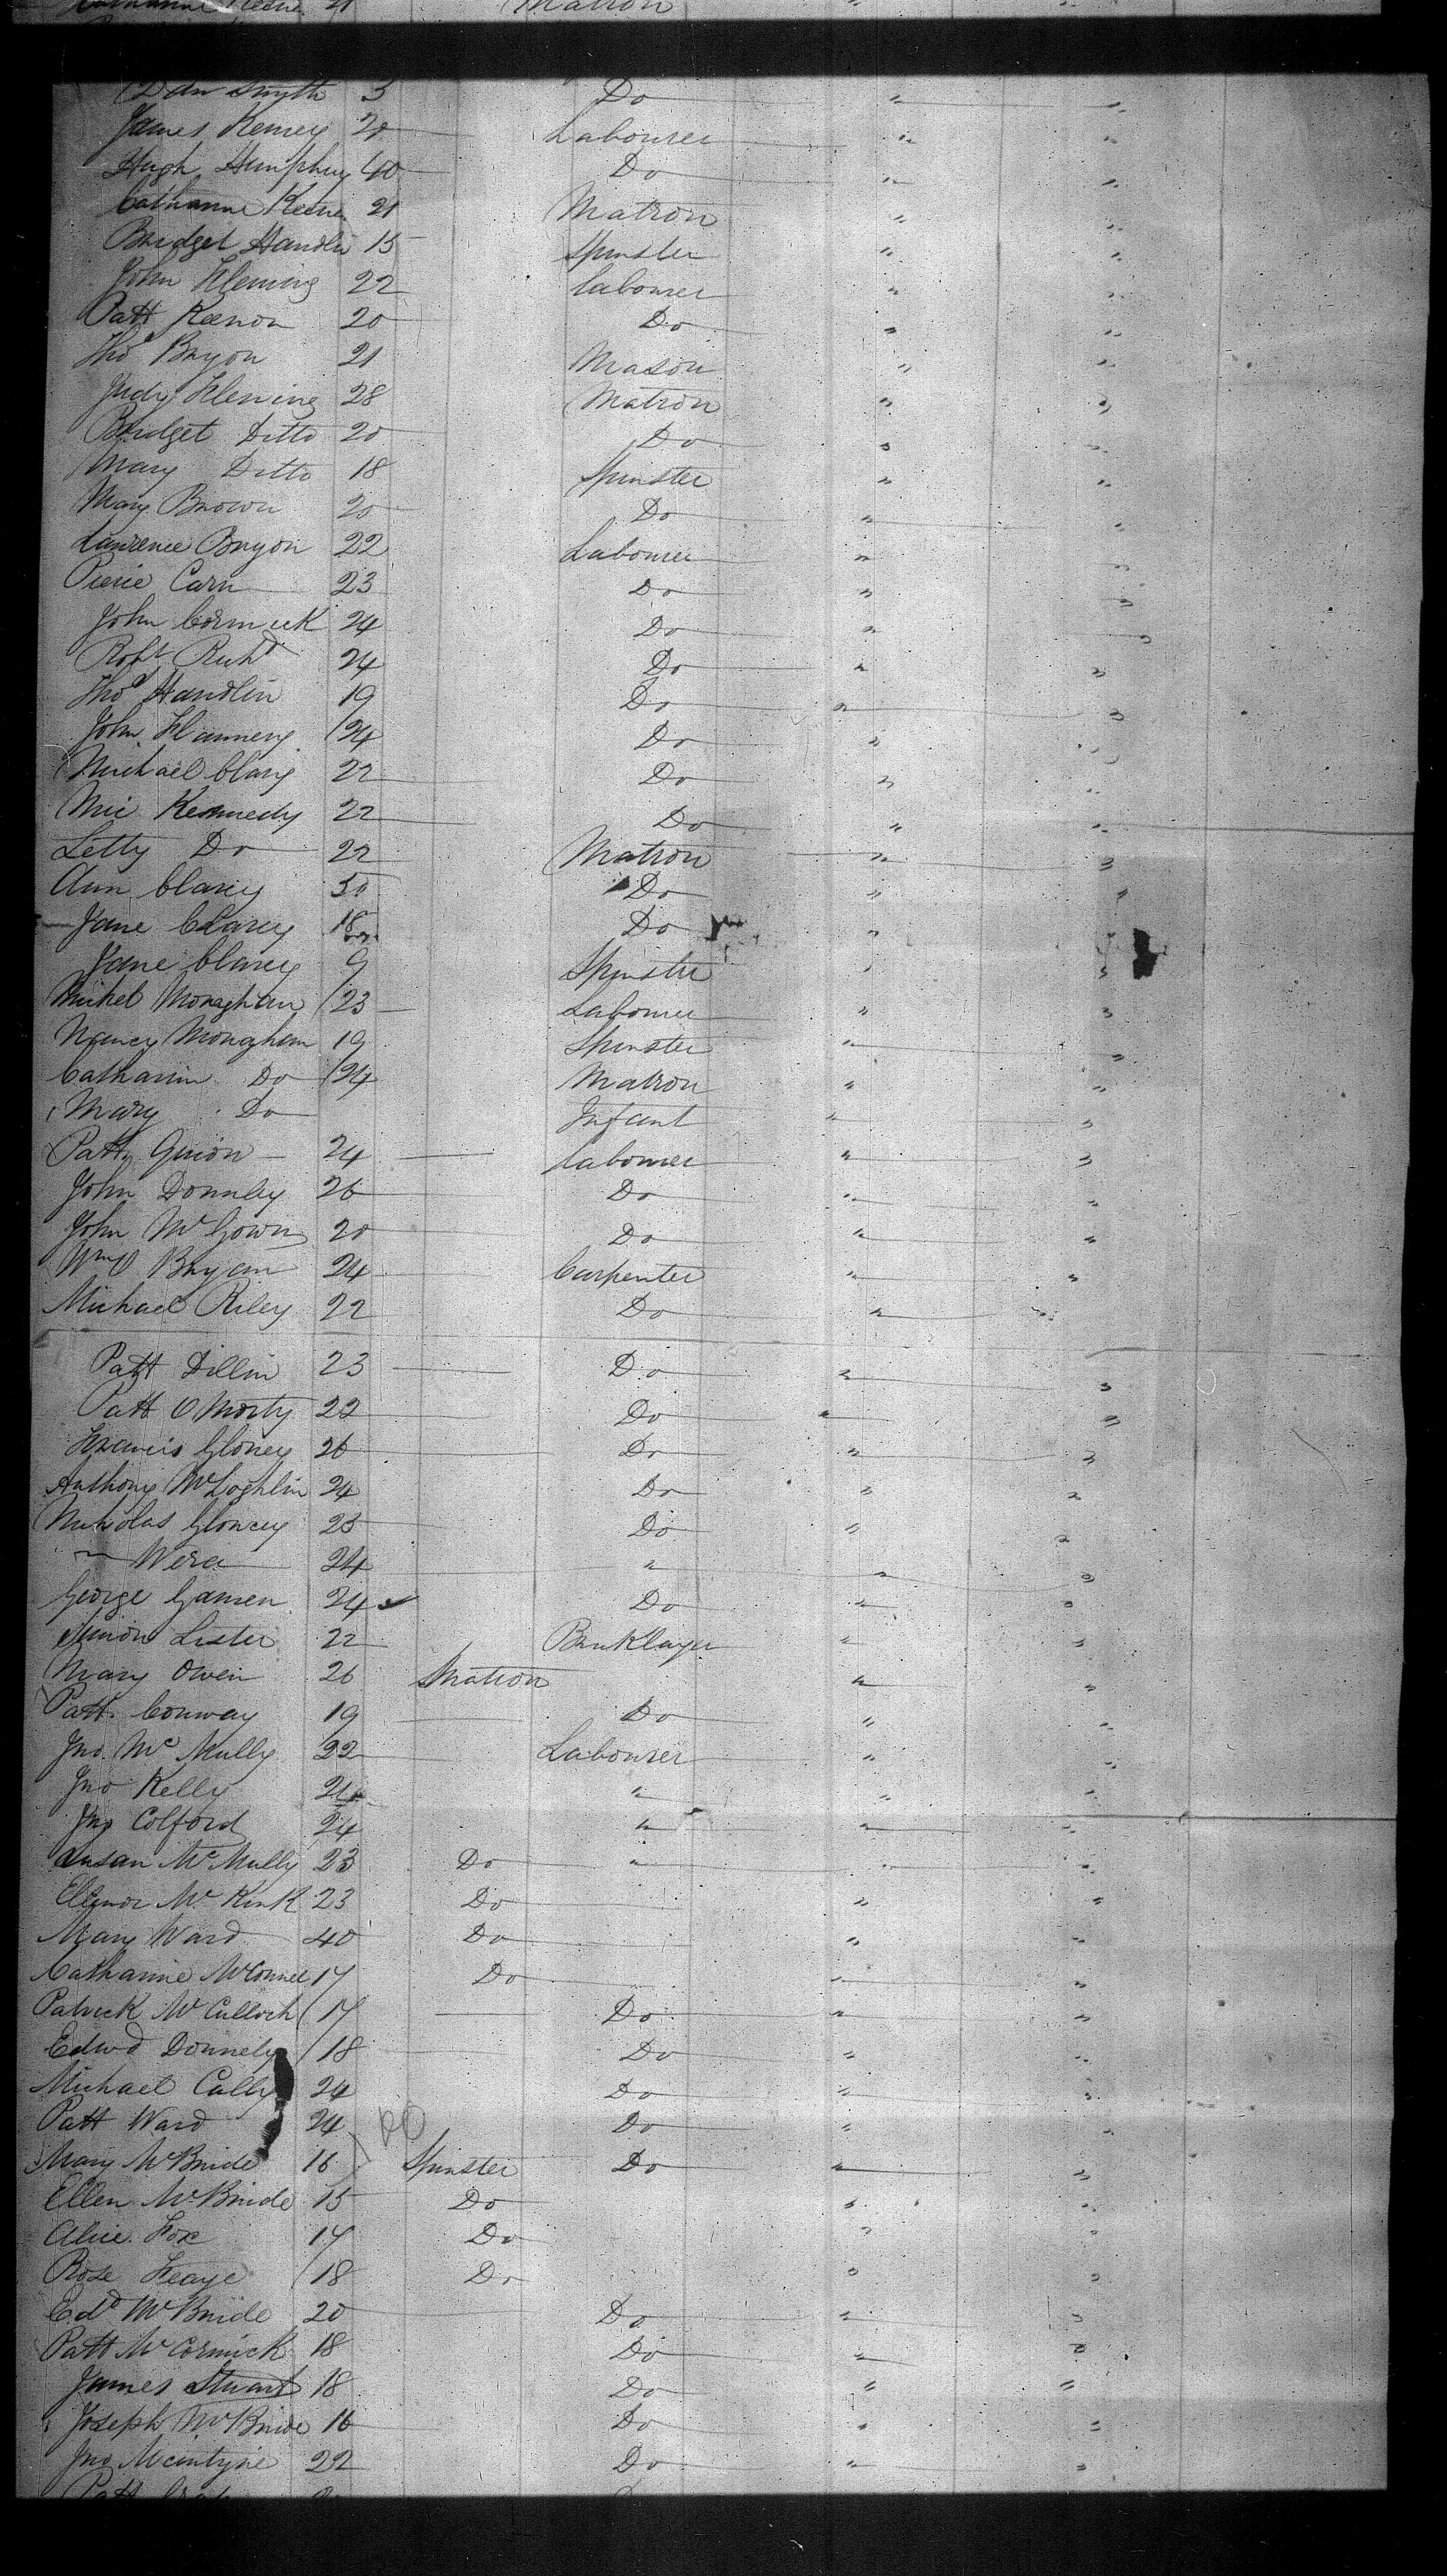 Matron
Smyth 3 Do " "
James Kenney 20 Labourer " "
Hugh Humphrey 40 Do " "
Catharine 21 Matron " "
Bridget Handlin 15 Spinster " "
John Fleming 22 Labourer " "
Patt Keenon 20 Do " "
Thos Bryon 21 Mason " "
Judy Fleming 28 Matron " "
Bridget Ditto 20 Do " "
Mary Ditto 18 Spinster " "
Mary Brown 20 Do " "
Lawrence Bryon 22 Labourer " "
Pierie Carn 23 Do " "
John Cormick 24 Do " "
Robt Richd 24 Do " "
Thos Handlin 19 Do " "
John Flannery 24 Do " "
Michael Clary 22 Do " "
Mic Kennedy 22 Do " "
Letty Do 22 Matron " "
Ann Clarey 50 Do " "
Jane Clarey 18 Do " "
Jane Clarey 9 Spinster " "
Mikel Monaghan 23 Labourer " "
Nancy Monaghan 19 Spinster " "
Catharin Do 24 Matron " "
Mary Do Infant " "
Patt Guion 24 Labourer " "
John Donnley 26 Do " "
John McGown 20 Do " "
Wm O Bryan 24 Carpenter " "
Michael Riley 22 Do " "
Patt Dillin 23 Do " "
Patt O Morty 22 Do " "
Francis Gloney 26 Do " "
Anthony McLoghlin 24 Do " "
Nicholas Gloncey 23 Do " "
" Wera 24 " " "
George Gamen 24 Do " "
Simon Lister 22 Bricklayer " "
Mary Owen 26 Matron " "
Patt. Conway 19 Do " "
Jno. Mc Mully 22 Labourer " "
Jno Kelly 24 " " "
Jno Colford 24 " " "
Susan Mc Mully 23 Do " " "
Ellenor Mc Kink 23 Do " "
Mary Ward 40 Do " "
Catharine McConnel 17 Do " "
Patrick McCulloch 17 Do " "
Edwd Donnely 18 Do " "
Michael Cally 24 Do " "
Patt Ward 24 Do " "
Mary McBride 16 Spinster Do " "
Ellen McBride 15 Do " "
Alice Fox 17 Do " "
Rose Feaye 18 Do " "
Edd McBride 20 Do " "
Patt McCormick 18 Do " "
James Stuart 18 Do " "
Joseph McBride 16 Do " "
Jno McIntyne 22 Do " "